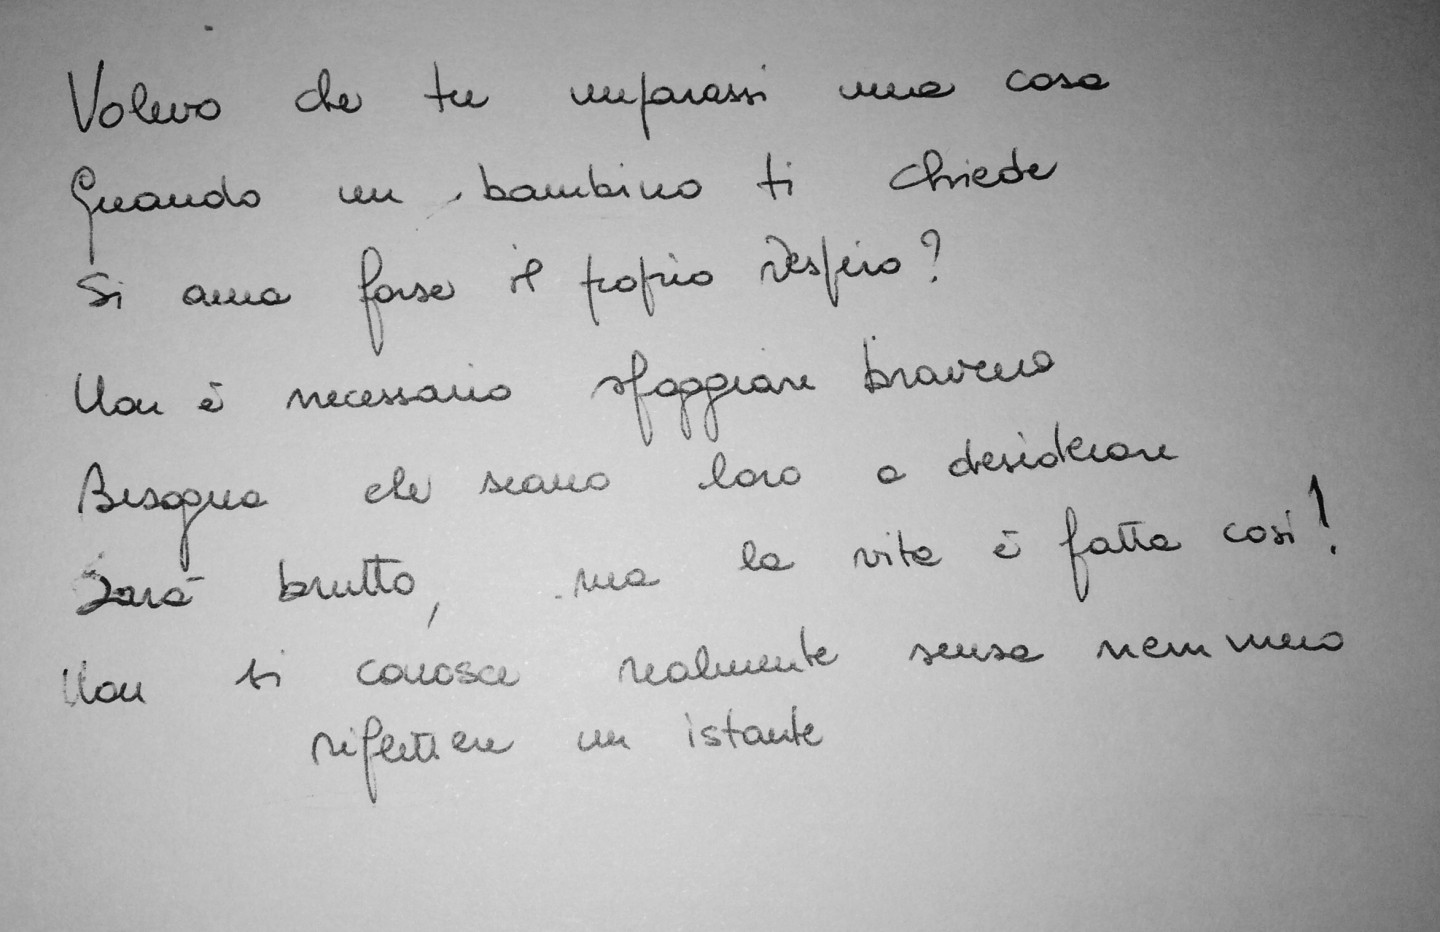 Volevo che tu imparassi una cosa
Quando un bambino ti chiede
Si ama forse il proprio respiro?
Non è necessario sfoggiare
Bisogna che siano loro a desiderare
Sarà brutto, ma la vita è fatta così!
Non si conosce realmente senza nemmeno
riflettere un istante